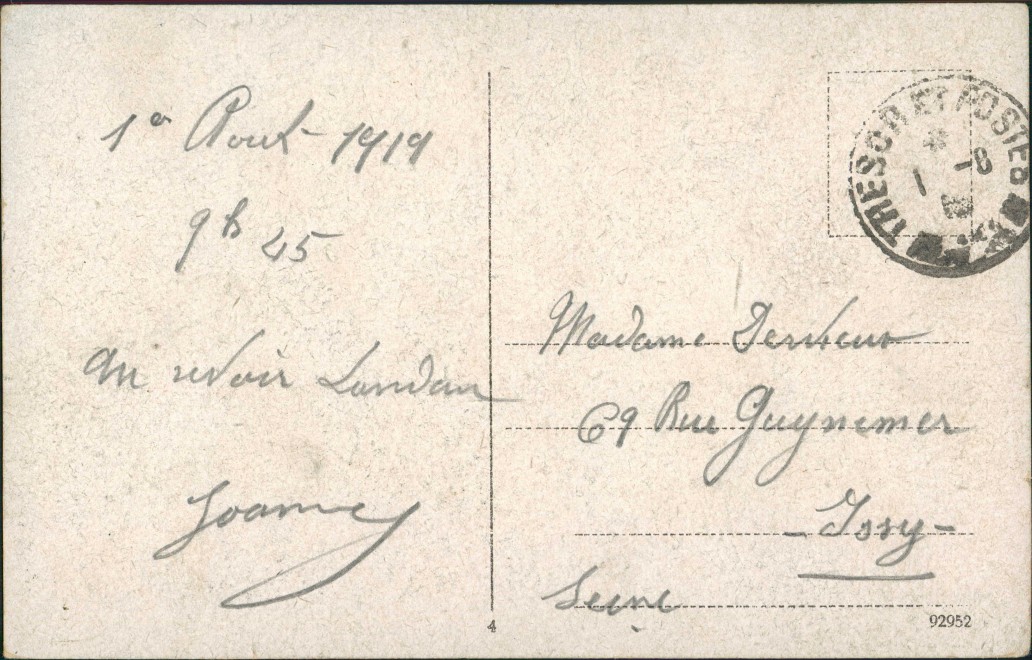 1er Aout 1919
9h 45
Au revoir Landau
TRESOR ET POSTES
1 -8
Madame
69 Rue Guynemer
- Issy -
Seine
4
92952